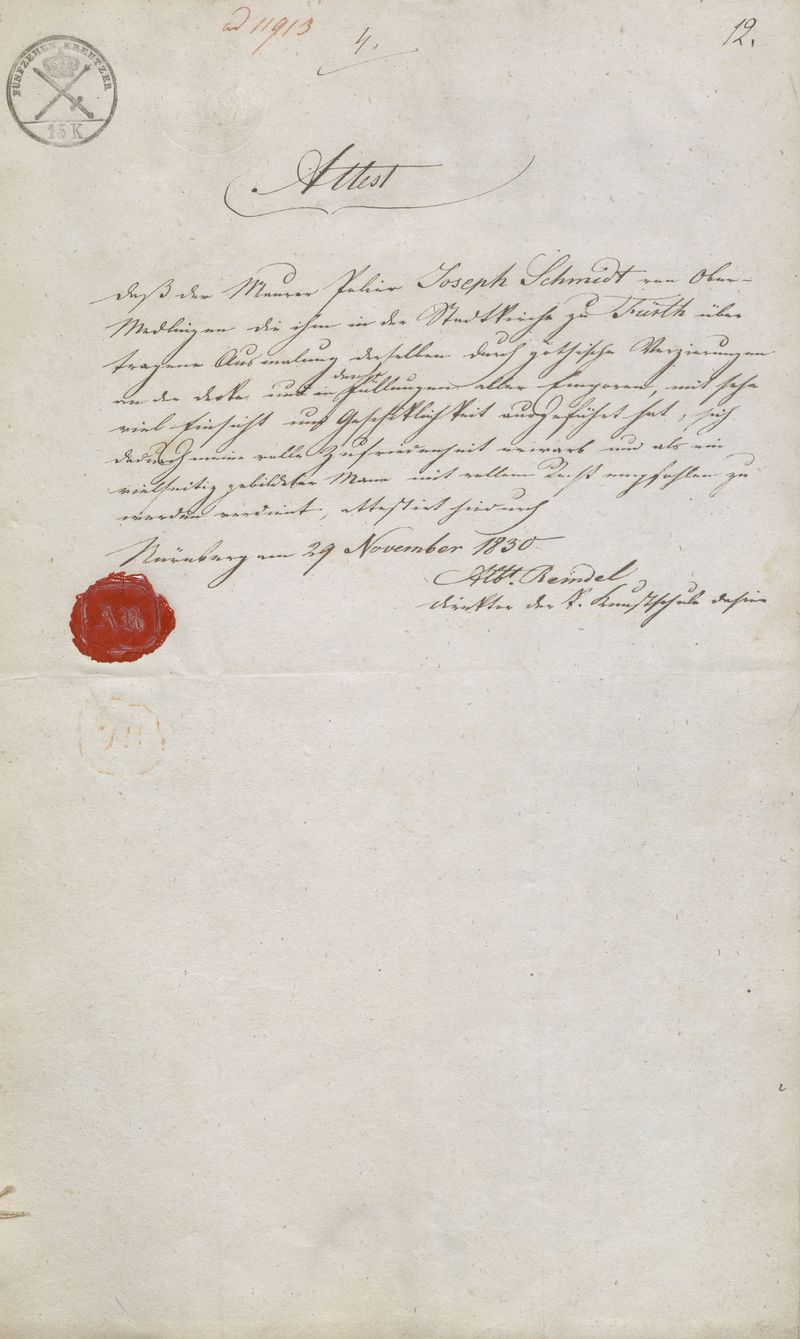 ad 11913
4.
12.
FÜNFZEHEN KREUTZER
15 K
Attest
daß der Maurer Polier Joseph Schmidt von Ober-
Medlingen die ihm in der Stadtkirche zu Fürth über
tragene Ausmalung derselben durch gothische Verzierungen
an der Decke und in den Füllungen aller Emporen, mit sehr
viel Einsicht und Geschiklichkeit ausgeführt hat, sich
dadurch meine volle Zufriedenheit erwarb und als ein
vielseitig gebildeter Mann mit vollem Recht empfohlen zu
werden verdient, attestiet hiedurch
Nürnberg am 29 November 1830.
Albt. Reindel
Direktor der k. Kunstschule dahier
AR